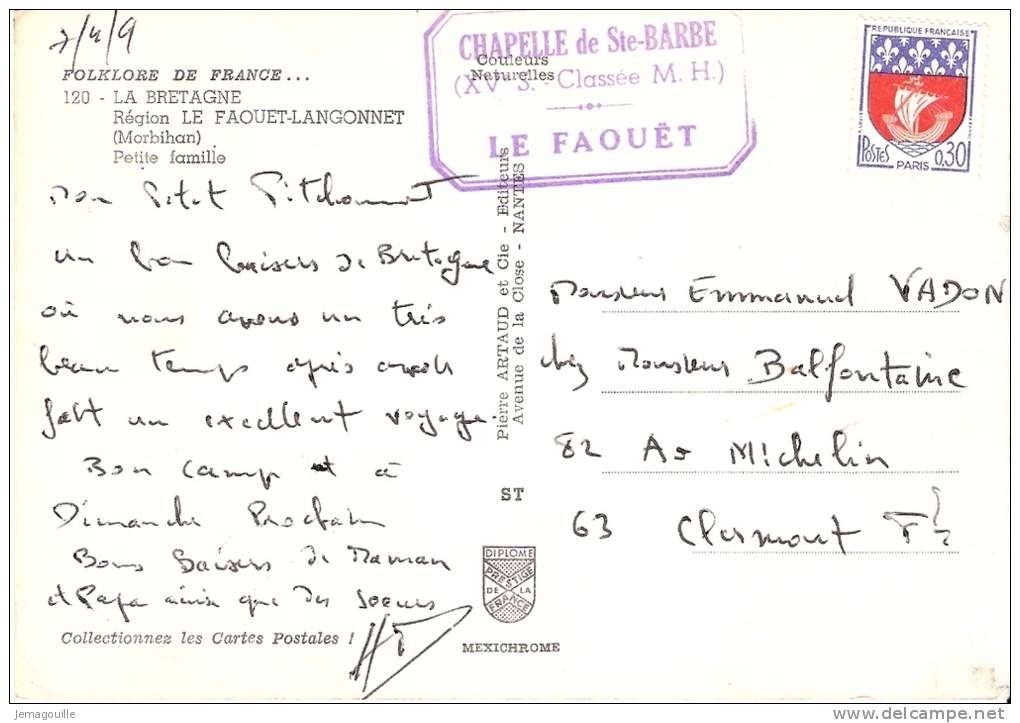 7/4/9
FOLKLORE DE FRANCE...
120 - LA BRETAGNE
Région LE FAOUET-LANGONNET
(Morbihan)
Petite famille
Couleurs
Naturelles
CHAPELLE de Ste-BARBE
(XVe S. - Classée M. H.)
LE FAOUËT
REPUBLIQUE FRANÇAISE
POSTES
PARIS
0,30
mon Petit
un bon baisers de Bretagne
où nous avons un très
beau temps après avoir
fait un excellent voyage.
Bon camp et à
Dimanche Prochain
Bons Baisers de Maman
et Papa ainsi que des soeurs
Collectionnez les Cartes Postales !
Pierre ARTAUD et Cie - Editeurs
Avenue de la Close - NANTES
ST
DIPLOME
PRESTIGE
DE LA
FRANCE
MEXICHROME
Monsieur Emmanuel VADON
chez Monsieur Balfontaine
82 Av Michelin
63 Clermont Fd
Jemagouille
delcampe.net